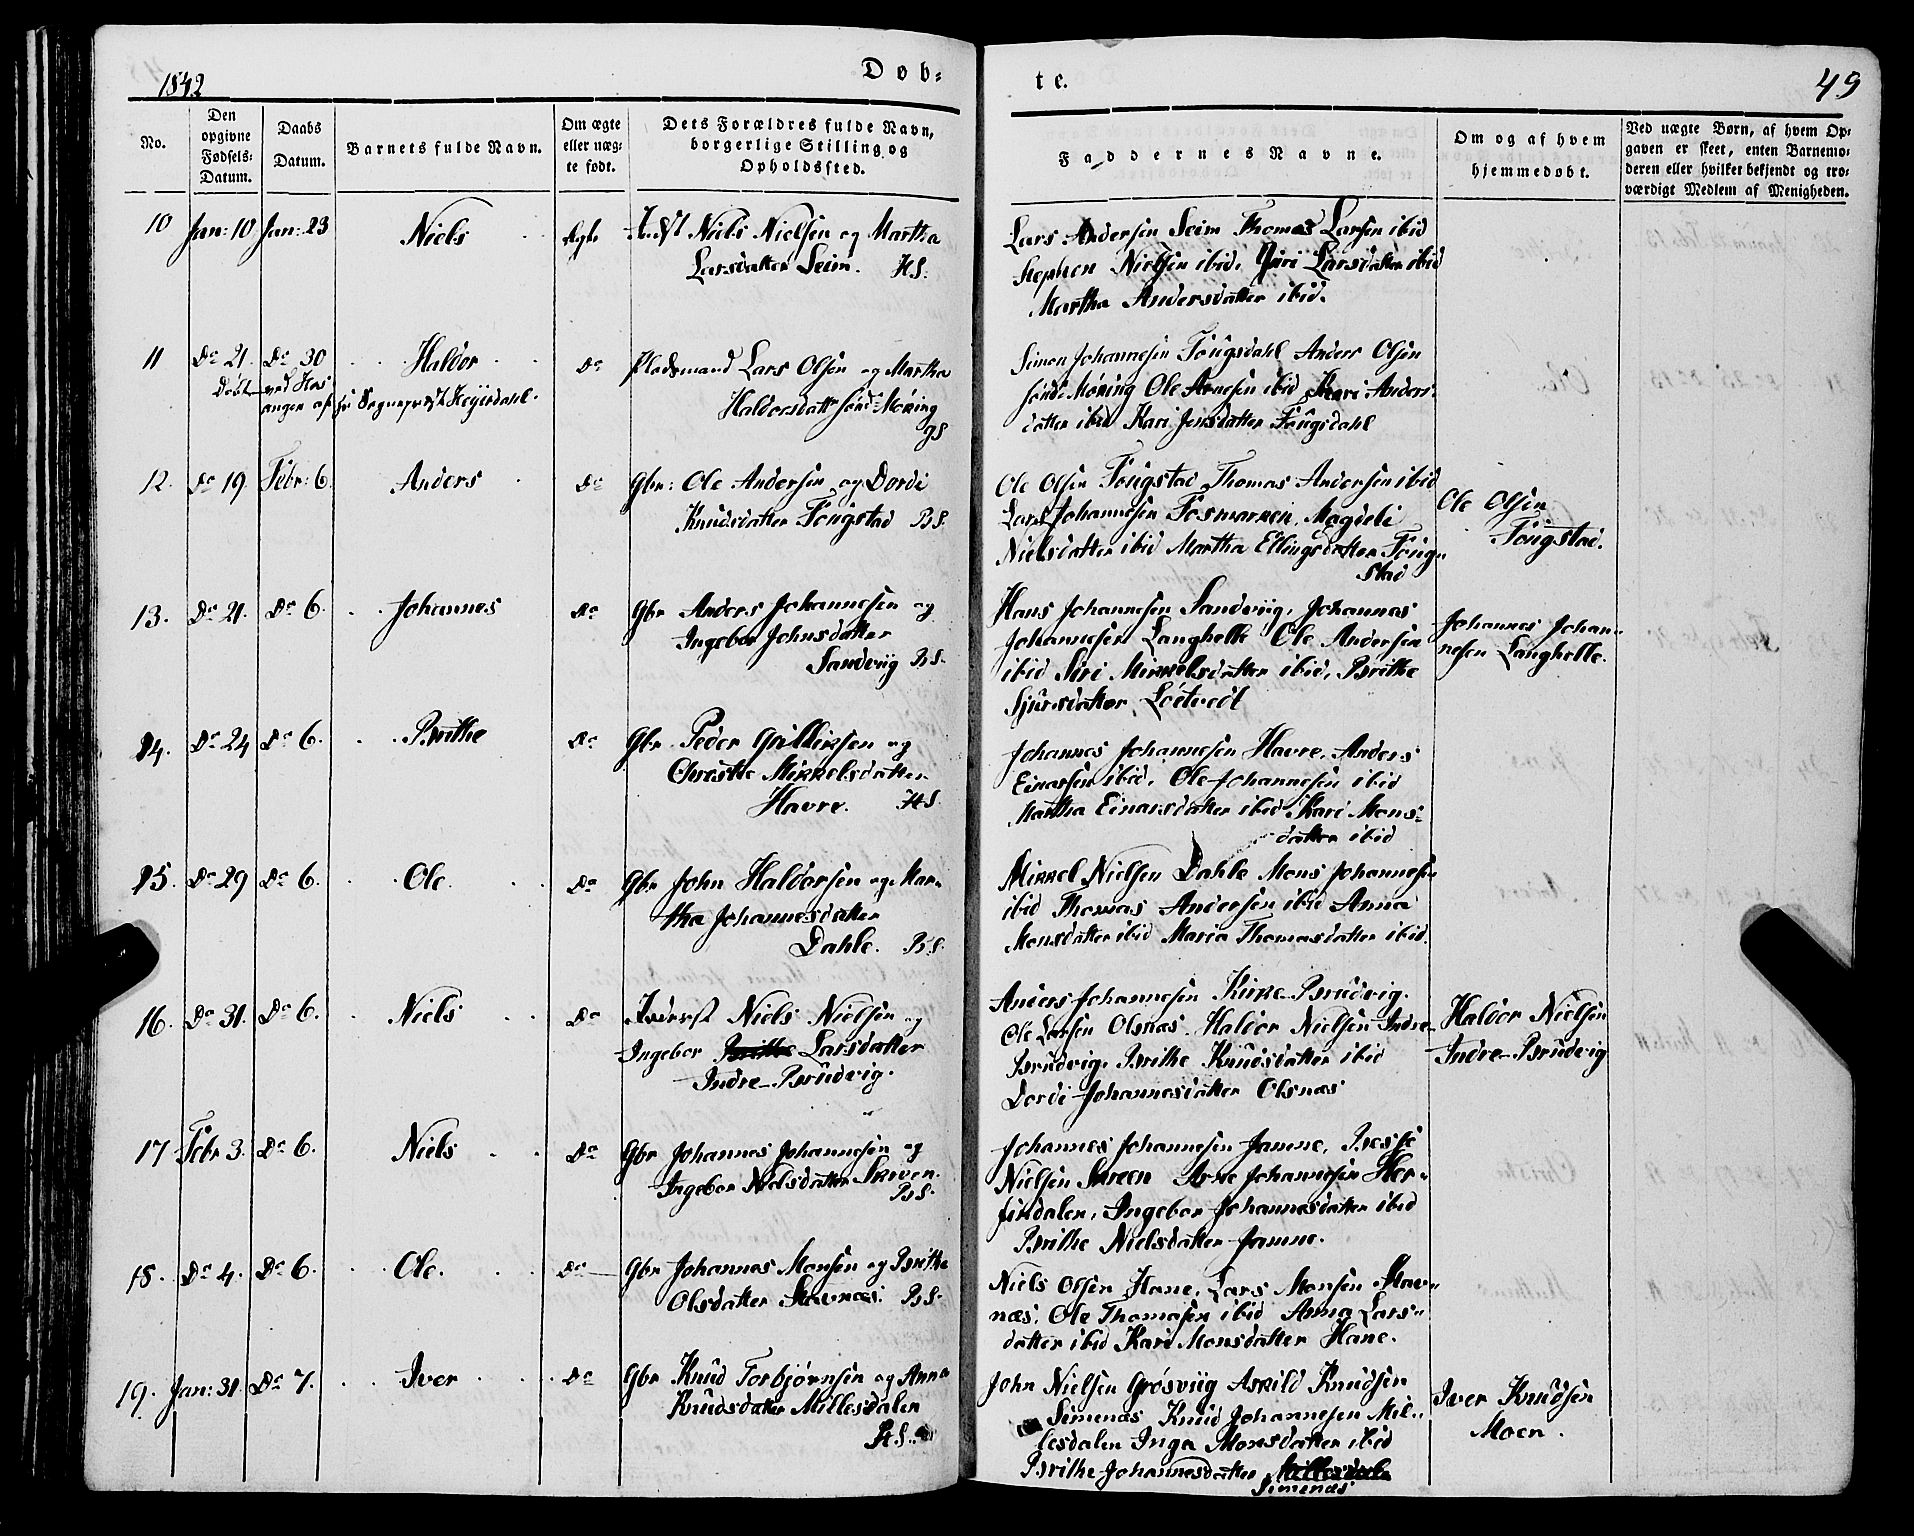 1842
Døb-
te.
49
No.
Den opgivne Fødsels-Datum.
Daabs Datum.
Barnets fulde Navn.
Om ægte eller uægte født.
Dets Forældres fulde Navn, borgerlige Stilling og Opholdssted.
Faddernes Navne.
Om og af hvem hjemmedøbt.
Ved uægte Børn, af hvem Opgaven er skeet, enten Barnemoderen eller hvilket bekjendt og troværdigt Medlem af Menigheden.
10 Jan: 10 Jan: 23 Niels Niels Nielsen og Martha
Larsdatter Seim. HS.
Lars Andersen Seim Thomas Larsen ibid
Stephen Nielsen ibid, Guri Larsdatter ibid
Martha Andersdatter ibid.
11 Do 21. Do 30 Haldor Do Pladsmand Lars Olsen og Martha
Døbt ved Hos
anger af Hr Sognepræst Heyerdahl.
Haldorsdatter søndre Møring
Simon Johannesen Tougsdahl Anders Olsen
søndre Møring Ole Arnesen ibid Kari Anders-
datter ibid Kari Jensdatter Tougsdahl
12. Do 19. Febr: 6. Anders Do Gbr: Ole Andersen og Dordi
Knudsdatter Tougstad BS.
Ole Olsen Tougstad Thomas Andersen ibid
Lars Johannesen Fosmarken, Magdeli
Nielsdatter ibid Martha Ellingsdatter Toug-
stad
Ole Olsen
Tougstad.
13. Do 21. Do 6. Johannes Do Gbr Anders Johannesen og
Ingebor Johnsdatter
Sandviig BS.
Hans Johannesen Sandviig, Johannes
Johannesen Langhelle Ole Andersen
ibid Siri Mikkelsdatter ibid, Brithe
Sjursdatter Løtvedt
Johannes Johan-
nesen Langhelle.
14. Do 24 Do 6. Brithe Do Gbr Peder Grillisen og
Christe Mikkelsdatter
Havre. HS.
Johannes Johannesen Havre, Anders
Einarsen ibid, Ole Johannesen ibid
Martha Einarsdatter ibid Kari Mons-
datter ibid
15. Do 29 Do 6. Ole Do Gbr John Haldorsen og Mar-
tha Johannesdatter
Dahle. BS.
Mikkel Nielsen Dahle Mons Johannesen
ibid Thomas Andersen ibid Anna
Monsdatter ibid Maria Thomasdatter ibid.
16. Do 31. Do 6. Niels Do Inderst Niels Nielsen og
Ingebor Brithe Larsdatter
Indre-Brudvig.
Anders Johannesen Kirke-Brudvig.
Ole Larsen Olsnæs. Haldor Nielsen Indre-
Brudvig, Brithe Knudsdatter ibid
Dordi Johannesdatter Olsnæs
Haldor Nielsen
Indre-Brudvig
17 Febr 3. Do 6. Niels Do Gbr Johannes Johannesen og
Ingebor Nielsdatter Skreen.
BS.
Johannes Johannesen Jamne, Brasse
Nielsen Skreen Arne Johannesen Her-
findalen, Ingebor Johannesdatter ibid
Brithe Nielsdatter Jamne.
18. Do 4. Do 6. Ole. Do Gbr Johannes Monsen og Brithe
Olsdatter Stavnæs. BS.
Niels Olsen Hane, Lars Monsen Stav-
næs, Ole Thomasen ibid Anna Lars-
datter ibid Kari Monsdatter Hane.
19. Jan: 31. Do 7. Iver Do Gbr Knud Torbjørnsen og Anna
Knudsdatter Millesdalen
HS.
John Nielsen Grøsviig Askild Knudsen
Simenæs Knud Johannesen Mil-
lesdalen Inga Monsdatter ibid
Brithe Johannesdatter
Simenæs
Iver Knudsen
Moen.